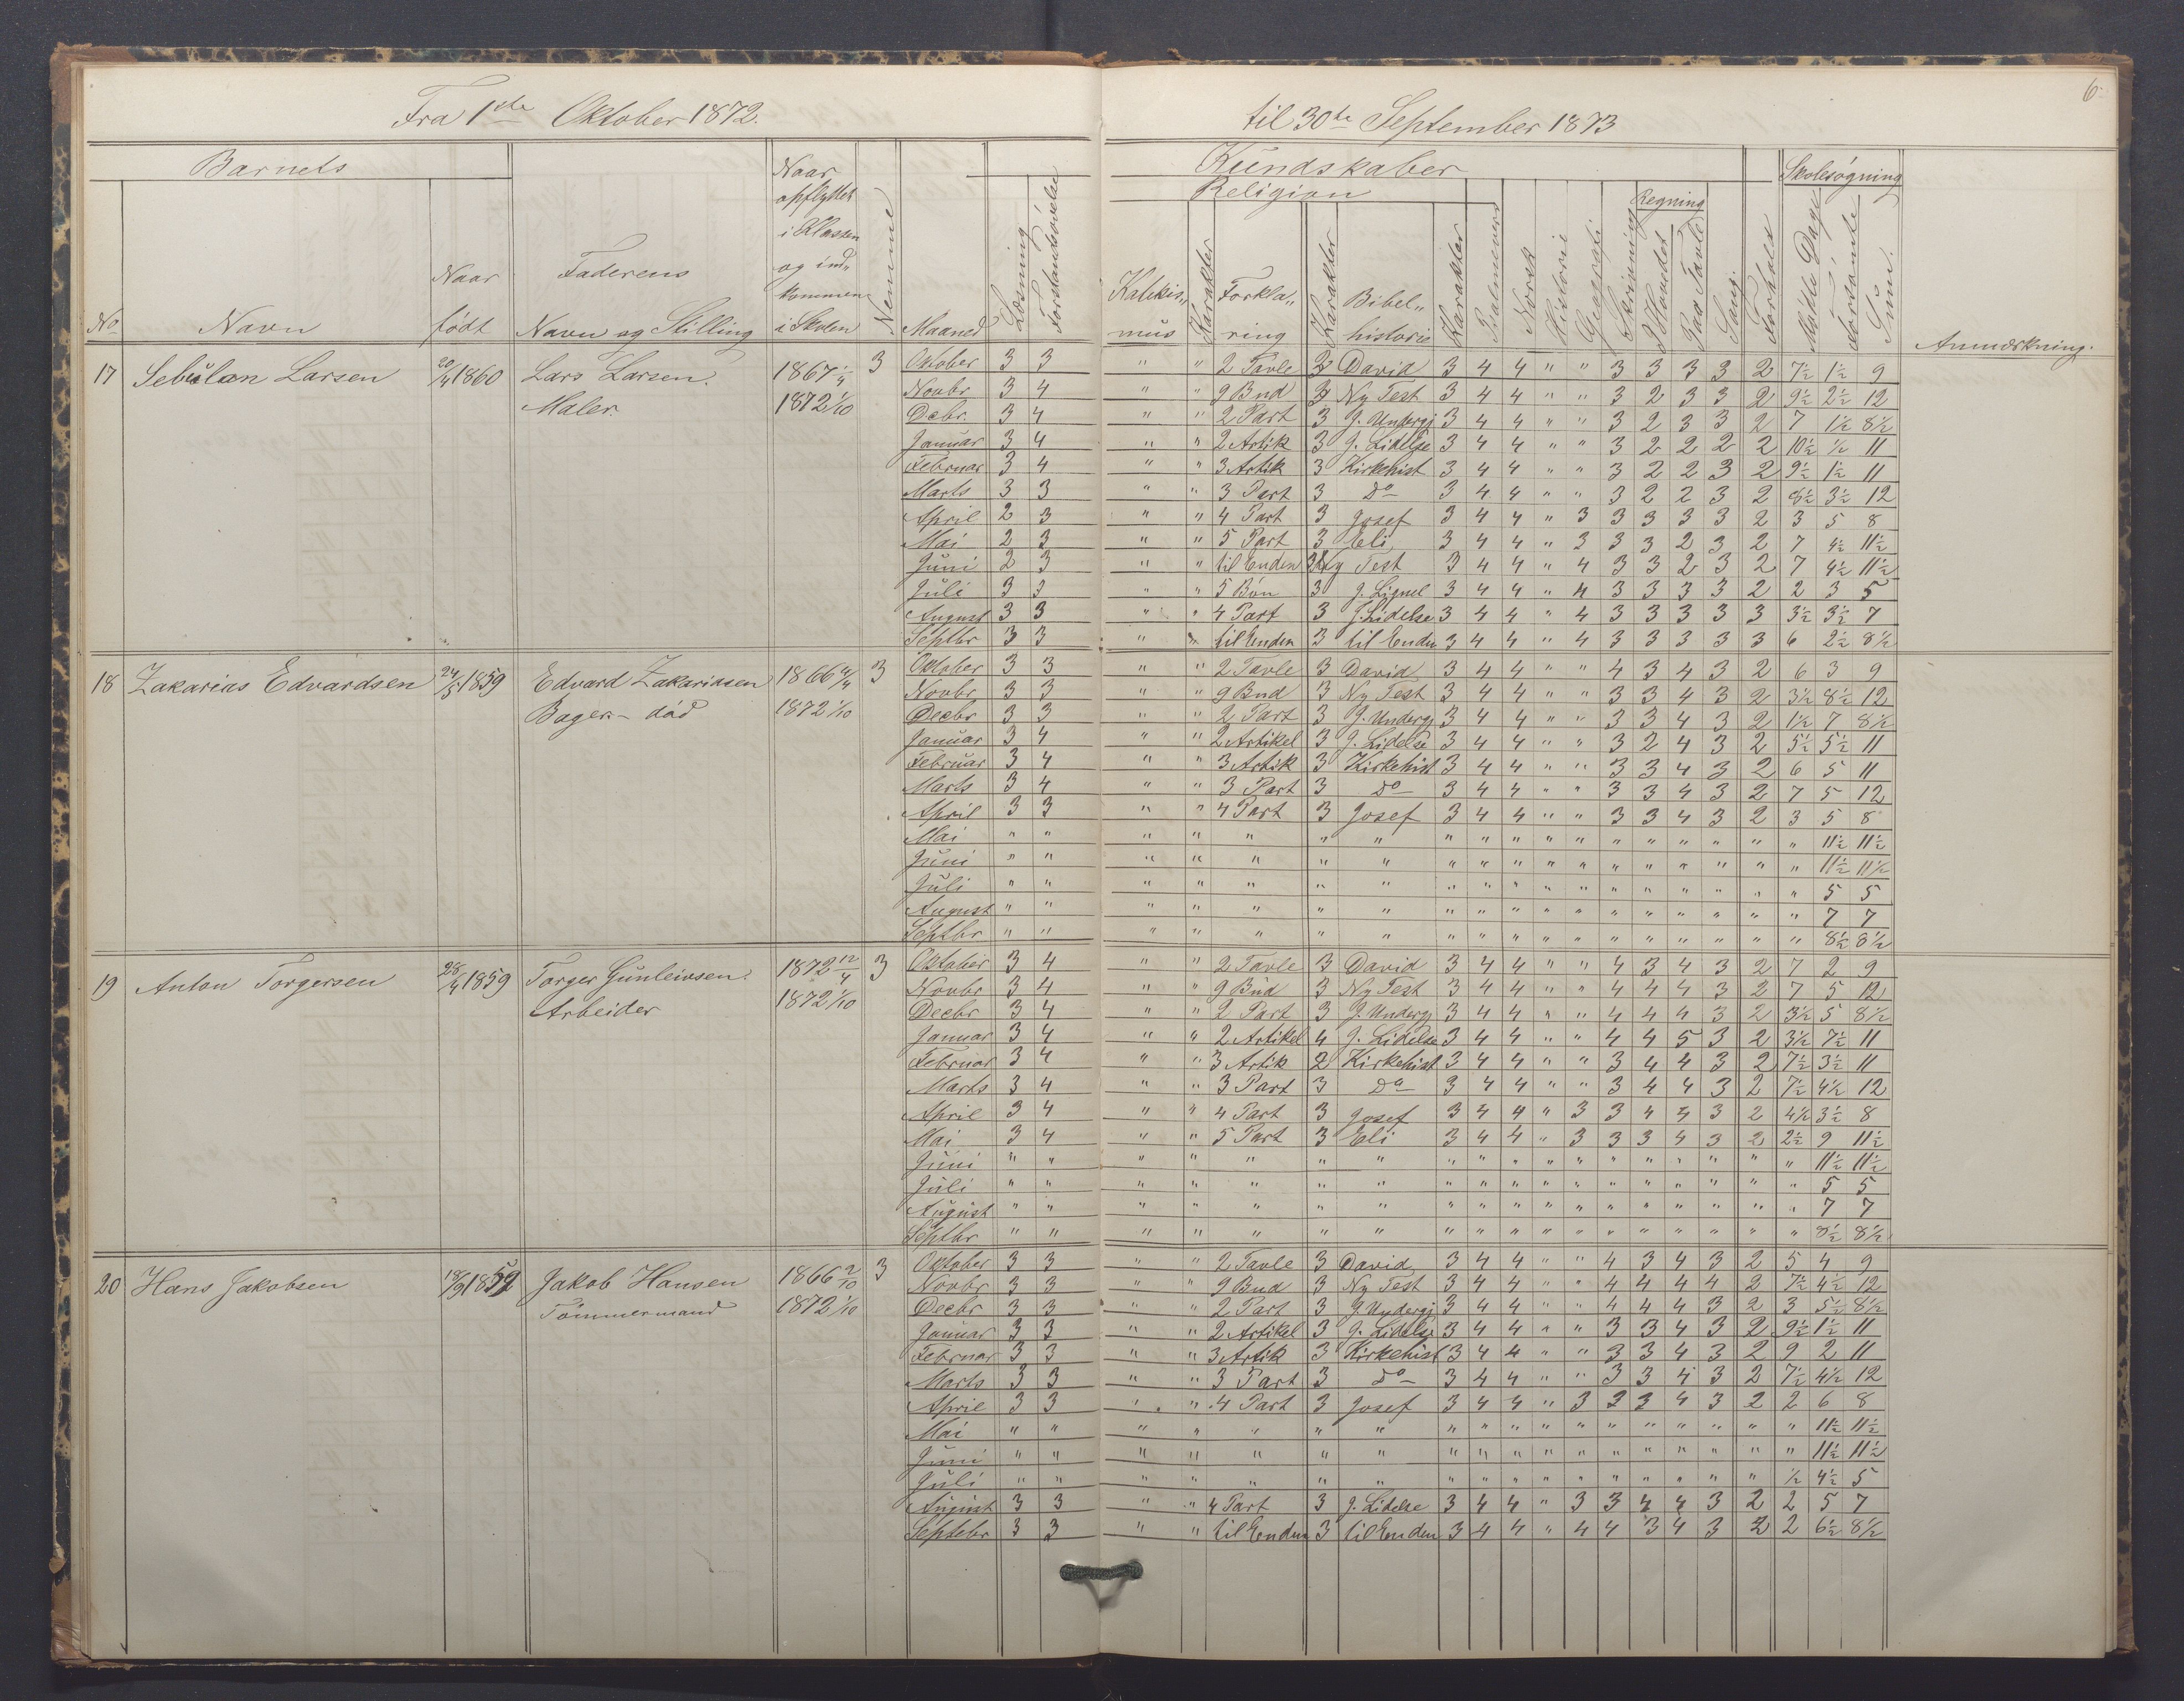 6
Fra 1ste Oktober 1872. til 30te September 1873
Barnets
No. Navn
Naar født
Faderens Navn og Stilling
Naar opflyttet i Klassen og ind„ kommen i Skolen
Nemme
Maaned
Læsning
Forstandsøvelse
Kundskaber
Religion
Katekis„ mus
Karakter
Forkla„ ring
Karakter
Bibel„ historie
Karakter
Psalmevers
Norsk
Historie
Geografi
Skrivning
Regning
I Hovedet
Paa Tavle
Sang
Forhold
Skolesøgning
Mødte Dage
Forsømte
Sum.
Anmærkning.
17 Sebulan Larsen 20/4 1860 Lars Larsen. Maler 1867 1/4 1872 1/10 3
Oktober 3 3 " " 2 Tavle 3 David 3 4 4 " " 3 3 3 3 2 7½ 1½ 9
Novbr 3 4 " " 9 Bud 3 Ny Test 3 4 4 " " 3 2 3 3 2 9½ 2½ 12
Debr. 3 4 " " 2 Part 3 J. Undergj 3 4 4 " " 3 2 3 3 2 7 1½ 8½
Januar 3 4 " " 2 Artik 3 J. Lidelse 3 4 4 " " 3 2 2 2 2 10½ ½ 11
Februar 3 4 " " 3 Artik 3 Kirkehist 3 4 4 " " 3 2 2 3 2 9½ 1½ 11
Marts 3 3 " " 3 Part 3 Do 3 4 4 " " 3 2 2 3 2 8½ 3½ 12
April 2 3 " " 4 Part 3 Josef 3 4 4 " 3 3 3 3 3 2 3 5 8
Mai 2 3 " " 5 Part 3 Eli 3 4 4 " 3 3 3 2 3 2 7 4½ 11½
Juni 2 3 " " til Enden 3 Ny Test 3 4 4 " 4 3 3 2 3 2 7 4½ 11½
Juli 3 3 " " 5 Bøn 3 J. Lignel 3 4 4 " 4 3 3 3 3 2 2 3 5
August 3 3 " " 4 Part 3 J. Lidelse 3 4 4 " 4 3 3 3 3 3 3½ 3½ 7
Septbr 3 3 " " til Enden 3 til Enden 3 4 4 " 4 3 3 3 3 3 6 2½ 8½
18 Zakarias Edvardsen 24/5 1859 Edvard Zakariasen Bager - død 1866 4/4 1872 1/10 3
Oktober 3 3 " " 2 Tavle 3 David 3 4 4 " " 4 3 4 3 2 6 3 9
Novbr 3 3 " " 9 Bud 3 Ny Test 3 4 4 " " 3 3 4 3 2 3½ 8½ 12
Decbr 3 3 " " 2 Part 3 J. Undergj 3 4 4 " " 3 3 4 3 2 1½ 7 8½
Januar 3 4 " " 2 Artikel 3 J. Lidelse 3 4 4 " " 3 2 4 3 2 5½ 5½ 11
Februar 3 4 " " 3 Artik 3 Kirkehist 3 4 4 " " 3 3 4 3 2 6 5 11
Marts 3 4 " " 3 Part 3 Do 3 4 4 " " 3 3 4 3 2 7 5 12
April 3 3 " " 4 Part 3 Josef 3 4 4 " " 3 3 4 3 2 3 5 8
Mai " " " " " " " " " " " " " " " " " " 11½ 11½
Juni " " " " " " " " " " " " " " " " " " 11½ 11½
Juli " " " " " " " " " " " " " " " " " " 5 5
August " " " " " " " " " " " " " " " " " " 7 7
Septbr " " " " " " " " " " " " " " " " " " 8½ 8½
19 Anton Torgersen 28/4 1859 Torger Gunleivsen. Arbeider 1872 12/4 1872 1/10 3
Oktober 3 4 " " 2 Tavle 3 David 3 4 4 " " 4 3 4 3 2 7 2 9
Novbr 3 4 " " 9 Bud 3 Ny Test 3 4 4 " " 4 4 4 3 2 7 5 12
Decbr 3 4 " " 2 Part 3 J. Undergj 3 4 4 " " 4 4 4 3 2 3½ 5 8½
Januar 3 4 " " 2 Artikel 4 J. Lidelse 3 4 4 " " 4 4 5 3 2 3½ 7½ 11
Februar 3 4 " " 3 Artik 2 Kirkehist 3 4 4 " " 3 4 4 3 2 7½ 3½ 11
Marts 3 4 " " 3 Part 3 Do 3 4 4 " " 3 4 4 3 2 7½ 4½ 12
April 3 4 " " 4 Part 3 Josef 3 4 4 " 3 3 4 4 3 2 4½ 3½ 8
Mai 3 4 " " 5 Part 3 Eli 3 4 4 " 3 3 3 4 3 2 2½ 9 11½
Juni " " " " " " " " " " " " " " " " " " 11½ 11½
Juli " " " " " " " " " " " " " " " " " " 5 5
August " " " " " " " " " " " " " " " " " " 7 7
Septbr " " " " " " " " " " " " " " " " " " 8½ 8½
20 Hans Jakobsen 18/9 1859 Jakob Hansen Tømmermand 1866 2/10 1872 1/10 3
Oktober 3 3 " " 2 Tavle 3 David 3 4 4 " " 4 3 4 3 2 5 4 9
Novbr 3 3 " " 9 Bud 3 Ny Test 3 4 4 " " 4 4 4 4 2 7½ 4½ 12
Decbr 3 3 " " 2 Part 3 J. Undergj 3 4 4 " " 4 4 4 3 2 3 5½ 8½
Januar 3 3 " " 2 Artikel 3 J. Lidelse 3 4 4 " " 3 3 4 3 2 9½ 1½ 11
Februar 3 3 " " 3 Artik 3 Kirkehist 3 4 4 " " 3 3 4 3 2 9 2 11
Marts 3 3 " " 3 Part 3 Do 3 4 4 " " 3 3 4 3 2 7½ 4½ 12
April 3 3 " " 4 Part 3 Josef 3 4 4 " 3 3 3 4 3 2 2 6 8
Mai " " " " " " " " " " " " " " " " " " 11½ 11½
Juni " " " " " " " " " " " " " " " " " " 11½ 11½
Juli " " " " " " " " " " " " " " " " " ½ 4½ 5
August 3 3 " " 4 Part 3 J. Lidelse 3 4 4 " 3 3 4 4 3 2 2 5 7
Septbr 3 3 " " til Enden 3 til Enden 3 4 4 " 4 4 3 4 3 2 2 6½ 8½